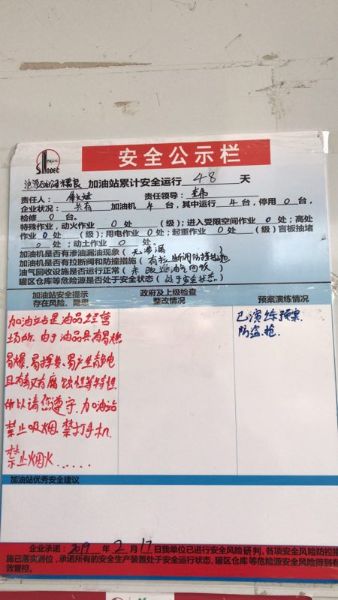 Sinopec
安全公示栏
加油站累计安全运行 48 天
责任人： 责任领导：
企业状况： 共有 加油机 4 台，其中运行 4 台，停用 0 台，
检修 0 台。
特殊作业，动火作业 0 处 （级）；进入受限空间作业 0 处；高处
作业 0 处 （级）；用电作业 0 处；起重作业 0 处；盲板抽堵
0 处；动土作业 0 处
加油机是否有渗油漏油现象（无渗漏）
加油机是否有拉断阀防撞措施（有拉断阀防撞措施）
油气回收设施是否运行正常（ 油气回收）
罐区仓库等危险源是否处于安全状态（处于安全状态）
加油站安全提示
存在风险、隐患
政府及上级检查
整改情况
预案演练情况
加油站是油品经营
场所，由于油品具有易燃
易爆、易挥发、易产生静电
且有 有腐蚀性等特性
所以请您遵守加油站
禁止吸烟、禁打手机
禁止烟火......
已演练预案
防盗、抢
加油站优秀安全建议
企业承诺：2019 年 2 月 17 日我单位已进行安全风险研判，各项安全风险防控措
施已落实到位，承诺所有的安全生产装置处于安全运行状态，罐区仓库等危险源安全风险得到有
效管控。